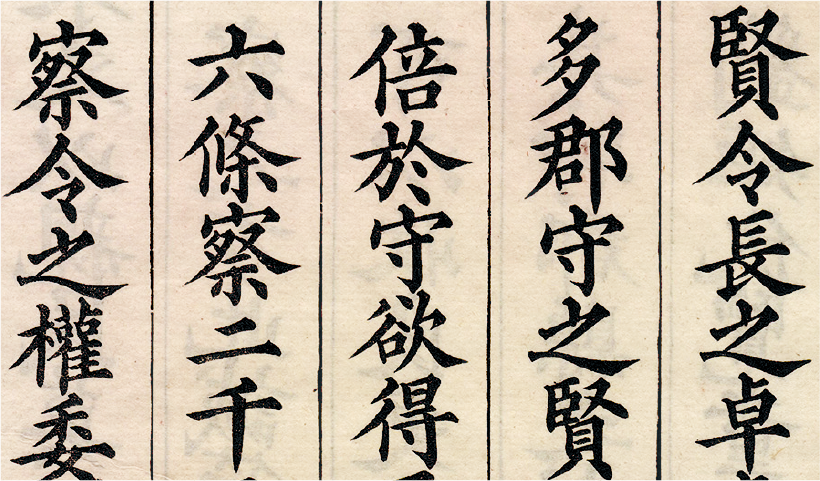 賢令長之卓
多郡守之賢
倍於守欲得
六條察二千
察令之權委